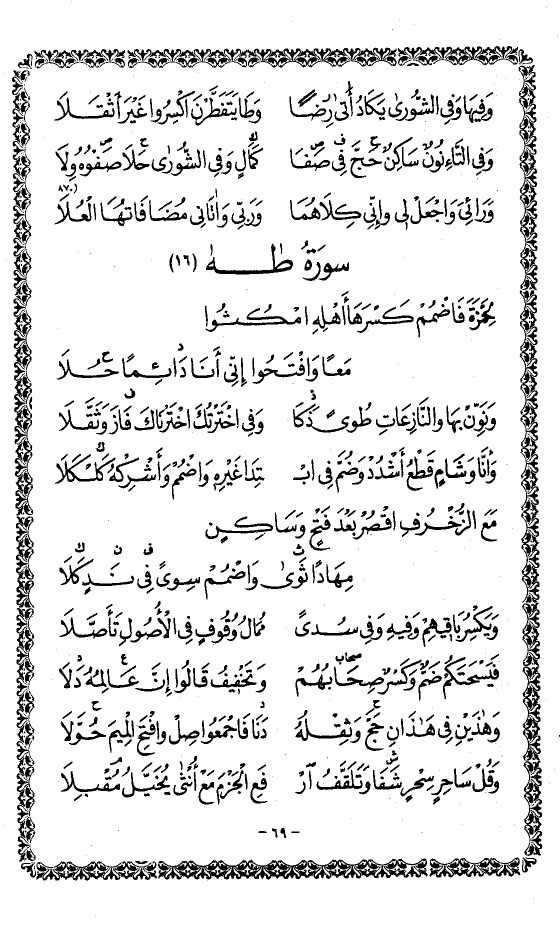 وَفِيهَا وَفِي الشُّورَى يَكَادُ أَتَى رِضًا وَطَا يَتَفَطَّرْنَ اكْسِرُوا غَيْرَ أَثْقَلَا
وَفِي التَّاءِ نُونٌ سَاكِنٌ حَجَّ فِي صَفَا كَمَالٍ وَفِي الشُّورَى حَلَا صَفْوُهُ وِلَا
وَرَائِيَ وَاجْعَلْ لِي وَإِنِّي كِلَاهُمَا وَرَبِّي وَآتَانِي مُضَافَاتُهَا الْعُلَا (٨٧٠
سورة طه (١٦)
لِحَمْزَةَ فَاضْمُمْ كَسْرَهَا أَهْلِهِ امْكُثُوا
مَعًا وَافْتَحُوا إِنِّي أَنَا دَائِمًا حُلَا
وَنَوِّنْ بِهَا وَالنَّازِعَاتِ طُوًى ذَكَا وَفِي اخْتَرْتُكَ اخْتَرْنَاكَ فَازَ وَثَقَّلَا
وَأَنَّا وَشَامٍ قَطْعُ أَشْدُدْ وَضُمَّ فِي ابْـ ـتِدَا غَيْرِهِ وَاضْمُمْ وَأَشْرِكْهُ كَلْكَلَا
مَعَ الزُّخْرُفِ اقْصُرْ بَعْدَ فَتْحٍ وَسَاكِنٍ
مِهَادًا ثَوَى وَاضْمُمْ سِوًى فِي نَدٍ كَلَا
وَيَكْسِرُ بَاقِيهِمْ وَفِيهِ وَفِي سُدًى مُمَالُ وُقُوفٍ فِي الْأُصُولِ تَأَصَّلَا
فَيَسْحَتَكُمْ ضَمٌّ وَكَسْرٌ صِحَابُهُمْ وَتَخْفِيفُ قَالُوا إِنَّ عَالِمُهُ دَلَا
وَهَذَيْنِ فِي هَذَانِ حَجَّ وَثِقْلُهُ دَنَا فَاجْمَعُوا صِلْ وَافْتَحِ الْمِيمَ حُوَّلَا
وَقُلْ سَاحِرٍ سِحْرٍ شَفَا وَتَلَقَّفُ ارْ فَعِ الْجَزْمَ مَعْ أُنْثَى يُخَيَّلُ مُقْبِلَا
- ٦٩ -